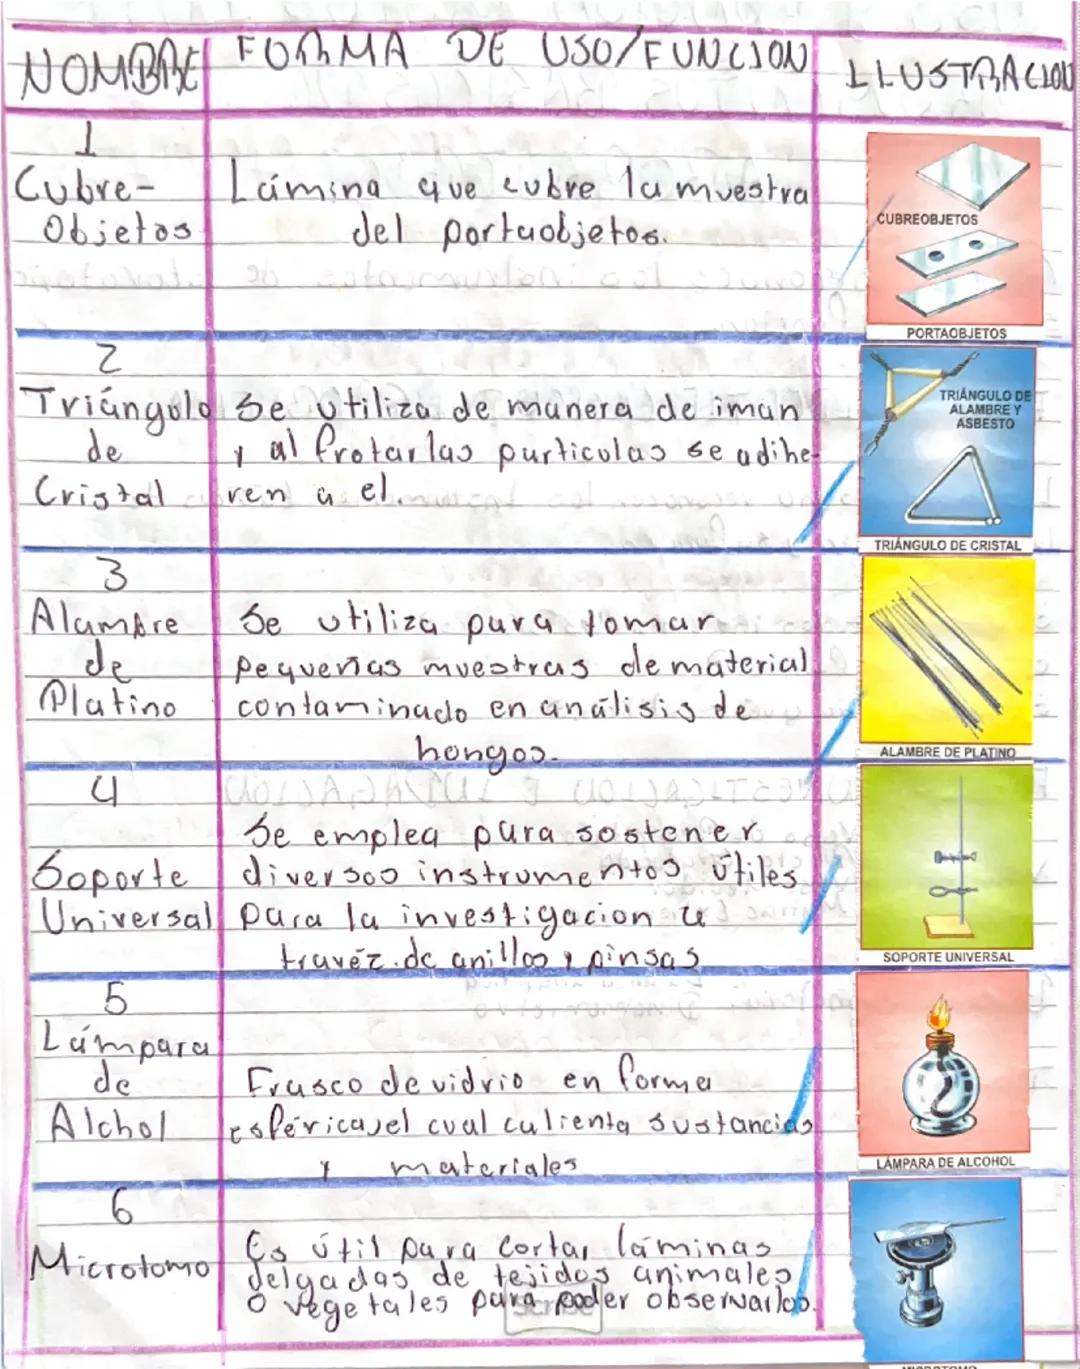 NOMBRE FORMA DE USO/FUNCION ILUSTRACION
1
Cubre-
Objetos
Lámina que cubre la muestra
del portaobjetos.
CUBREOBJETOS
PORTAOBJETOS
2
Triángulo
de
Cristal
Se utiliza de manera de iman
y al frotarlas particulas se adihe-
ren a el.
TRIÁNGULO DE
ALAMBRE Y
ASBESTO
TRIÁNGULO DE CRISTAL
3
Alambre
de
Platino
Se utiliza para tomar
pequeñas muestras de material
contaminado en análisis de
hongos.
ALAMBRE DE PLATINO
4
Soporte
Universal
Se emplea para sostener
diversos instrumentos útiles
para la investigacion a
travéz de anillos y pinsas
SOPORTE UNIVERSAL
5
Lámpara
de
Alchol
Frasco de vidrio en forma
esférica, el cual calienta sustancias
y materiales
LÁMPARA DE ALCOHOL
6
Microtomo
Es útil para cortar láminas
delgadas de tejidos animales
o vegetales para poder observarlos.
MICROTOMO